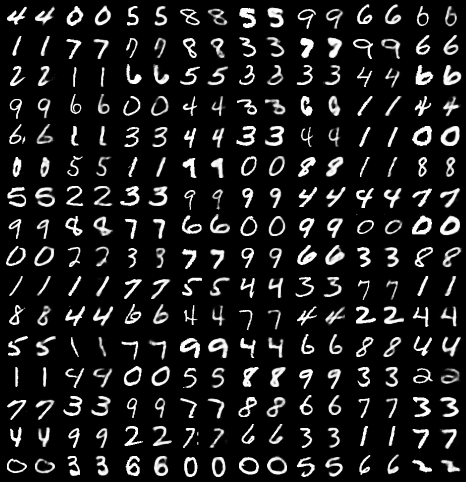 4 4 0 0 5 5 8 8 5 5 9 9 6 6 6 6
1 1 7 7 7 7 8 8 3 3 7 7 9 9 6 6
2 2 1 1 6 6 5 5 3 3 3 3 4 4 6 6
9 9 6 6 0 0 4 4 3 3 6 6 1 1 4 4
6 6 1 1 3 3 4 4 3 3 4 4 1 1 0 0
0 0 5 5 1 1 9 9 0 0 8 8 1 1 8 8
5 5 2 2 3 3 9 9 9 9 4 4 4 4 7 7
9 9 8 8 7 7 6 6 0 0 9 9 0 0 0 0
0 0 2 2 3 3 7 7 9 9 6 6 3 3 8 8
1 1 1 1 7 7 5 5 4 4 3 3 7 7 1 1
8 8 4 4 6 6 4 4 7 7 4 4 2 2 4 4
5 5 1 1 7 7 9 9 4 4 6 6 8 8 4 4
1 1 9 9 0 0 5 5 8 8 9 9 3 3 2 2
7 7 3 3 9 9 7 7 8 8 6 6 7 7 3 3
4 4 9 9 2 2 7 7 6 6 3 3 1 1 7 7
0 0 3 3 6 6 0 0 0 0 5 5 6 6 2 2